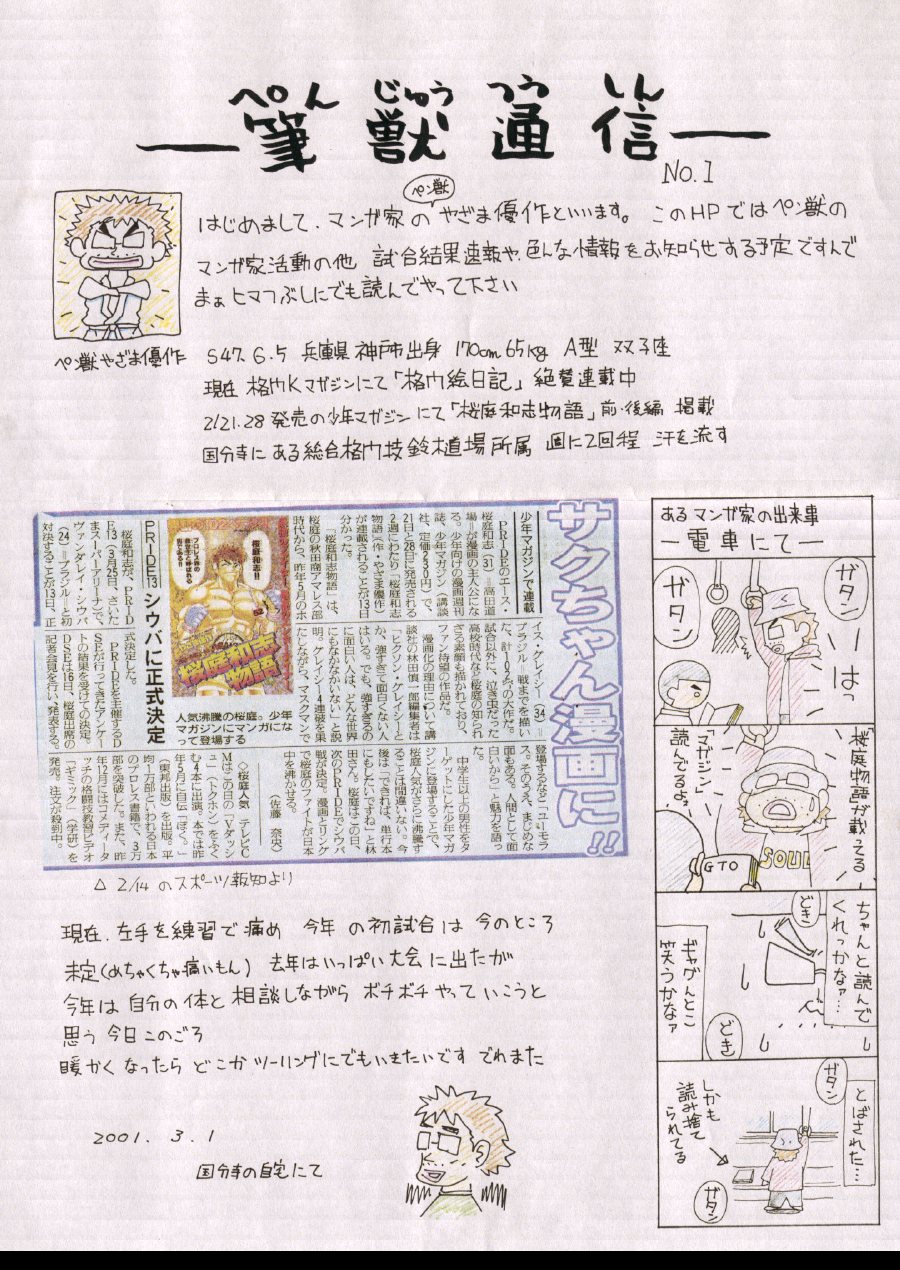 ぺん じゅう つう しん
筆獣通信
No.1
ペン獣
はじめまして、マンガ家のやざま優作といいます。このHPではペン獣の
マンガ家活動の他 試合結果速報や、色んな情報をお知らせする予定ですんで
まぁヒマつぶしにでも読んでやって下さい
ペン獣やざま優作
S47.6.5 兵庫県神戸市出身 170cm 65kg A型 双子座
現在 格ウKマガジンにて「格ウ絵日記」絶賛連載中
2/21.28発売の少年マガジンにて「桜庭和志物語」前・後編 掲載
国分寺にある総合格ウ技鈴木道場所属 週に2回程 汗を流す
サクちゃん漫画に!!
少年マガジンで連載
PRIDEのエース・
桜庭和志(31)=高田道
場=が漫画の主人公にな
る。少年向けの漫画週刊
誌、少年マガジン(講談
社、定価230円)で、
21日と28日に発売される
2週にわたり「桜庭和志
物語」(作・やざま優作)
が連載されることが13日
分かった。
「桜庭和志物語」は、
桜庭の秋田商アマレス部
時代から、昨年5月のホ
イス・グレイシー(34=
ブラジル)戦までを描い
た、計107㌻の大作だ。
試合以外に、泣き虫だった
高校時代など桜庭の知られ
ざる素顔も描かれており、
ファン待望の作品だ。
漫画化の理由について講
談社の林田慎一郎編集者は
「ヒクソン・グレイシーと
か、強すぎて面白くない人
はいる。でも、強すぎるの
に面白い人は、どんな世界
でもなかなかいない」と説
明。グレイシー4連破を果
たしながら、マスクマンで
登場するなど「ユーモラ
ス。そのうえ、まじめな
面もある。人間として面
白いから」と魅力を語っ
た。
中学生以上の男性をタ
ーゲットにした少年マガ
ジンに登場することで、
桜庭人気がさらに沸騰す
ることは間違いない。今
後は「できれば、単行本
にもしたいですね」と林
田さん。桜庭はこの日、
次のPRIDEでシウバ
戦が決定。漫画とリング
で桜庭のファイトが日本
中を沸かせる。
(佐藤 奈央)
◇桜庭人気 テレビC
Mはこの日の「Vダッシ
ュ!(トクホン)をふく
む4本に出演。本では昨
年5月に自伝「ぼく。」
(東邦出版)を出版。平
均1万部といわれる日本
のプロレス書籍で、3万
部を突破した。また、昨
年12月にはコメディータ
ッチの格闘技教習ビデオ
「ギミック」(学研)を
発売。注文が殺到中。
プロレス界の
救世主と呼ばれる
男である!!
桜庭和志!!
桜庭和志
物語
人気沸騰の桜庭。少年
マガジンにマンガにな
って登場する
PRIDE13 シウバに正式決定
桜庭和志が、PRID
E13(3月25日、さいた
まスーパーアリーナ)で、
ヴァンダレイ・シウバ
(24)=ブラジル=と初
対決することが13日、正
式決定した。
PRIDEを主催するD
SEが行ってきたアンケー
トの結果を受けての決定。
DSEは16日、桜庭出席の
記者会見を行い、発表する。
△ 2/14 のスポーツ報知より
あるマンガ家の出来事
―電車にて―
ガタン
ガタン
はっ
「桜庭物語が載ってる
「マガジン」
読んでるよぉ
GTO
SOUL
ちゃんと読んで
くれっかなァ…
どき
ギャグんとこ
笑うかなァ
どき
とばされた…
ガタン
しかも
読み捨て
られてる
ガタン
現在、左手を練習で痛め 今年の初試合は 今のところ
未定(めちゃくちゃ痛いもん) 去年はいっぱい大会に出たが
今年は自分の体と相談しながらボチボチやっていこうと
思う今日このごろ
暖かくなったらどこかツーリングにでもいきたいです でわまた
2001. 3. 1
国分寺の自宅にて